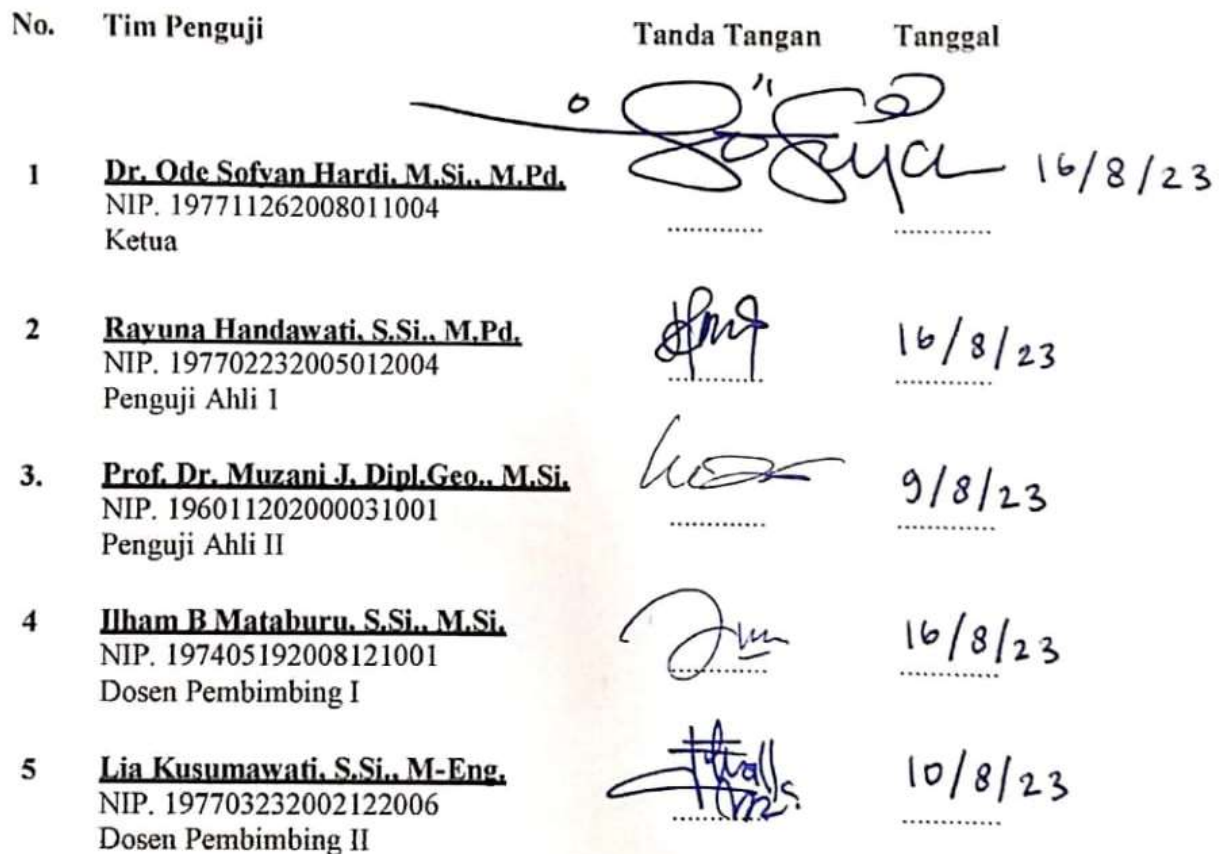 No. Tim Penguji Tanda Tangan Tanggal
1 Dr. Ode Sofyan Hardi, M.Si., M.Pd. 16/8/23
NIP. 197711262008011004
Ketua
2 Rayuna Handawati, S.Si., M.Pd. 16/8/23
NIP. 197702232005012004
Penguji Ahli 1
3. Prof. Dr. Muzani J. Dipl.Geo., M.Si. 9/8/23
NIP. 196011202000031001
Penguji Ahli II
4 Ilham B Mataburu, S.Si., M.Si. 16/8/23
NIP. 197405192008121001
Dosen Pembimbing I
5 Lia Kusumawati, S.Si., M-Eng. 10/8/23
NIP. 197703232002122006
Dosen Pembimbing II